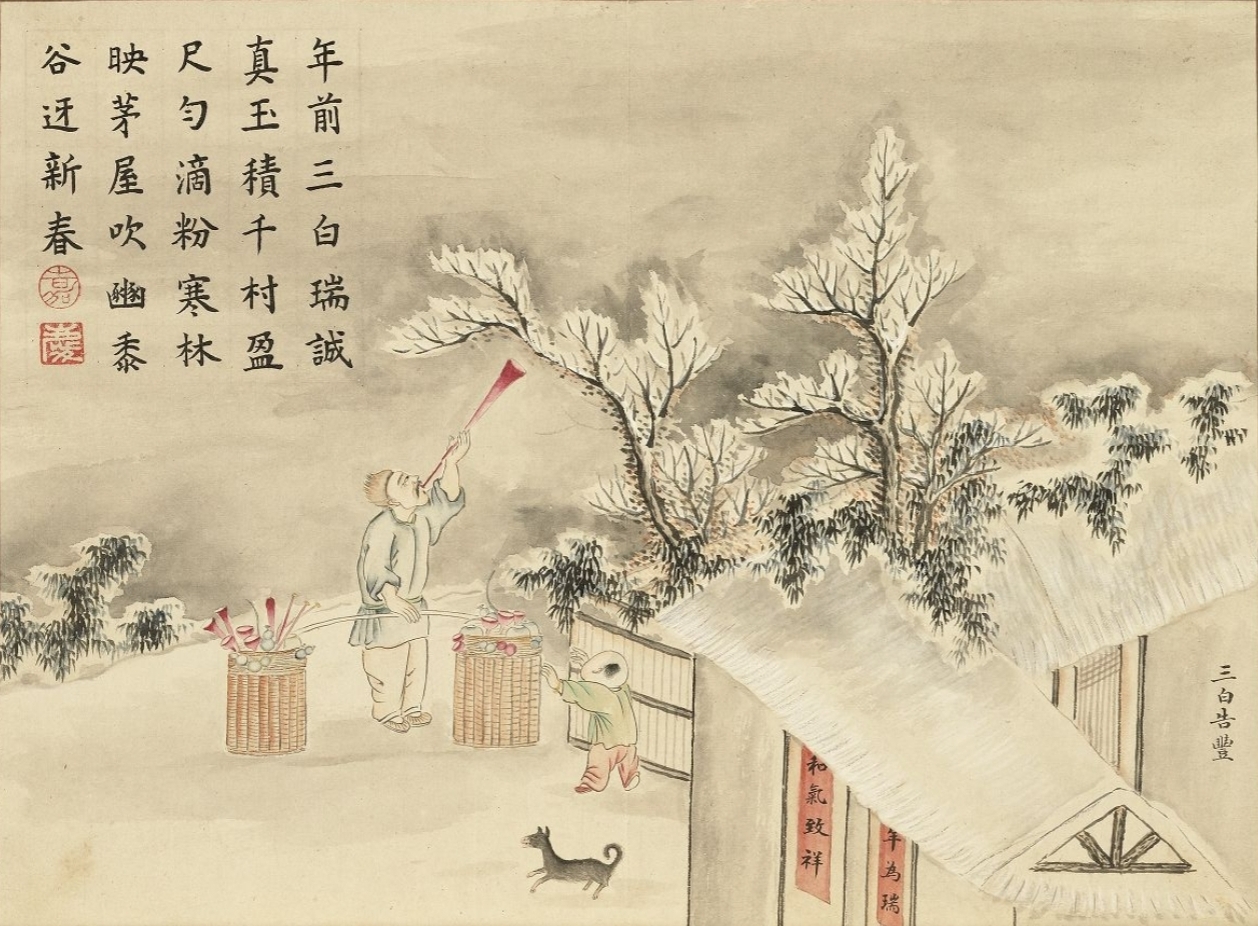 年前三白瑞誠
真玉積千村盈
尺勻滴粉寒林
映茅屋吹豳黍
谷迓新春
嘉
慶
三白告豐
年為瑞
和氣致祥